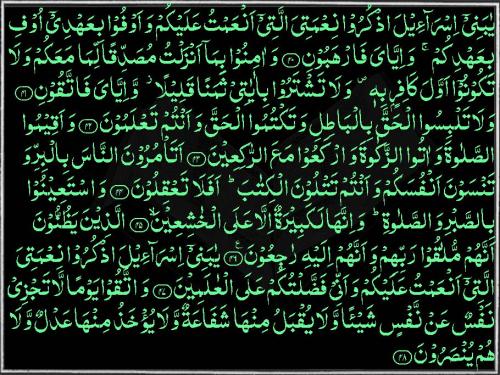 يٰبَنِىْٓ اِسْرَآءِيْلَ اذْكُرُوْا نِعْمَتِىَ الَّتِىْٓ اَنْعَمْتُ عَلَيْكُمْ وَاَوْفُوْا بِعَهْدِىْٓ اُوْفِ
بِعَهْدِكُمْ ۚ وَاِيَّاىَ فَارْهَبُوْنِ ﴿۴۰﴾ وَاٰمِنُوْا بِمَآ اَنْزَلْتُ مُصَدِّقًا لِّمَا مَعَكُمْ وَلَا
تَكُوْنُوْٓا اَوَّلَ كَافِرٍۭ بِهٖ ۪ وَلَا تَشْتَرُوْا بِاٰيٰتِىْ ثَمَنًا قَلِيْلًا ۫ وَّاِيَّاىَ فَاتَّقُوْنِ ﴿۴۱﴾
وَلَا تَلْبِسُوا الْحَقَّ بِالْبَاطِلِ وَتَكْتُمُوا الْحَقَّ وَاَنْتُمْ تَعْلَمُوْنَ ﴿۴۲﴾ وَاَقِيْمُوا
الصَّلٰوةَ وَاٰتُوا الزَّكٰوةَ وَارْكَعُوْا مَعَ الرّٰكِعِيْنَ ﴿۴۳﴾ اَتَاْمُرُوْنَ النَّاسَ بِالْبِرِّ وَ
تَنْسَوْنَ اَنْفُسَكُمْ وَاَنْتُمْ تَتْلُوْنَ الْكِتٰبَ ؕ اَفَلَا تَعْقِلُوْنَ ﴿۴۴﴾ وَاسْتَعِيْنُوْا
بِالصَّبْرِ وَالصَّلٰوةِ ؕ وَاِنَّهَا لَكَبِيْرَةٌ اِلَّا عَلَى الْخٰشِعِيْنَ ۙ﴿۴۵﴾ الَّذِيْنَ يَظُنُّوْنَ
اَنَّهُمْ مُّلٰقُوْا رَبِّهِمْ وَاَنَّهُمْ اِلَيْهِ رٰجِعُوْنَ ﴿۴۶﴾ يٰبَنِىْٓ اِسْرَآءِيْلَ اذْكُرُوْا نِعْمَتِىَ
الَّتِىْٓ اَنْعَمْتُ عَلَيْكُمْ وَاَنِّىْ فَضَّلْتُكُمْ عَلَى الْعٰلَمِيْنَ ﴿۴۷﴾ وَاتَّقُوْا يَوْمًا لَّا تَجْزِىْ
نَفْسٌ عَنْ نَّفْسٍ شَيْئًا وَّلَا يُقْبَلُ مِنْهَا شَفَاعَةٌ وَّلَا يُؤْخَذُ مِنْهَا عَدْلٌ وَّلَا
هُمْ يُنْصَرُوْنَ ﴿۴۸﴾